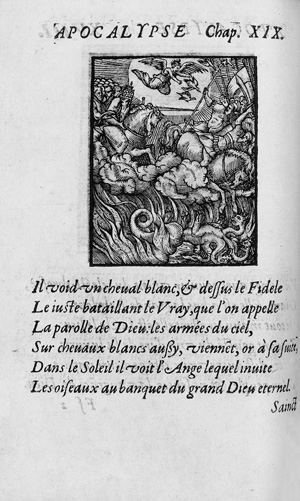 APOCALYPSE Chap. XIX.
Il void vn cheual blanc, & deſſus le Fidele
Le iuſte bataillant le Vray, que l'on appelle
La parolle de Dieu: les armées du ciel,
Sur cheuaux blancs auſſy, viennẽt, or à ſa ſuite,
Dans le Soleil il voit l'Ange lequel inuite
Les oiſeaux au banquet du grand Dieu eternel.
Sainct